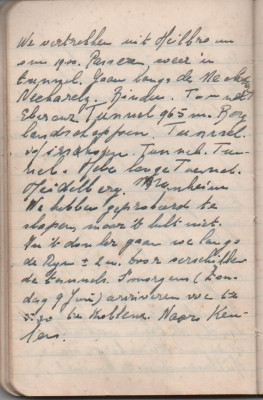 We vertrekken uit Heilbronn
om 1900. Passeren, weer in
tunnel. Gaan langs de Neckar
Neckarelz. Binau. Tunnel
Eberau. Tunnel 965 m. Berg
landschappen. Tunnel.
Tunnel. Tun-
nel. Hele lange Tunnel.
Heidelberg. Mannheim
We hebben geprobeerd te
slapen, maar 't lukt niet.
In 't donker gaan we langs
de Rijn ± 2 u. door verschillen
de tunnels. 's morgens (Zon-
dag 9 Juni) arriveren we te
te Koblenz. Naar Keu-
len.